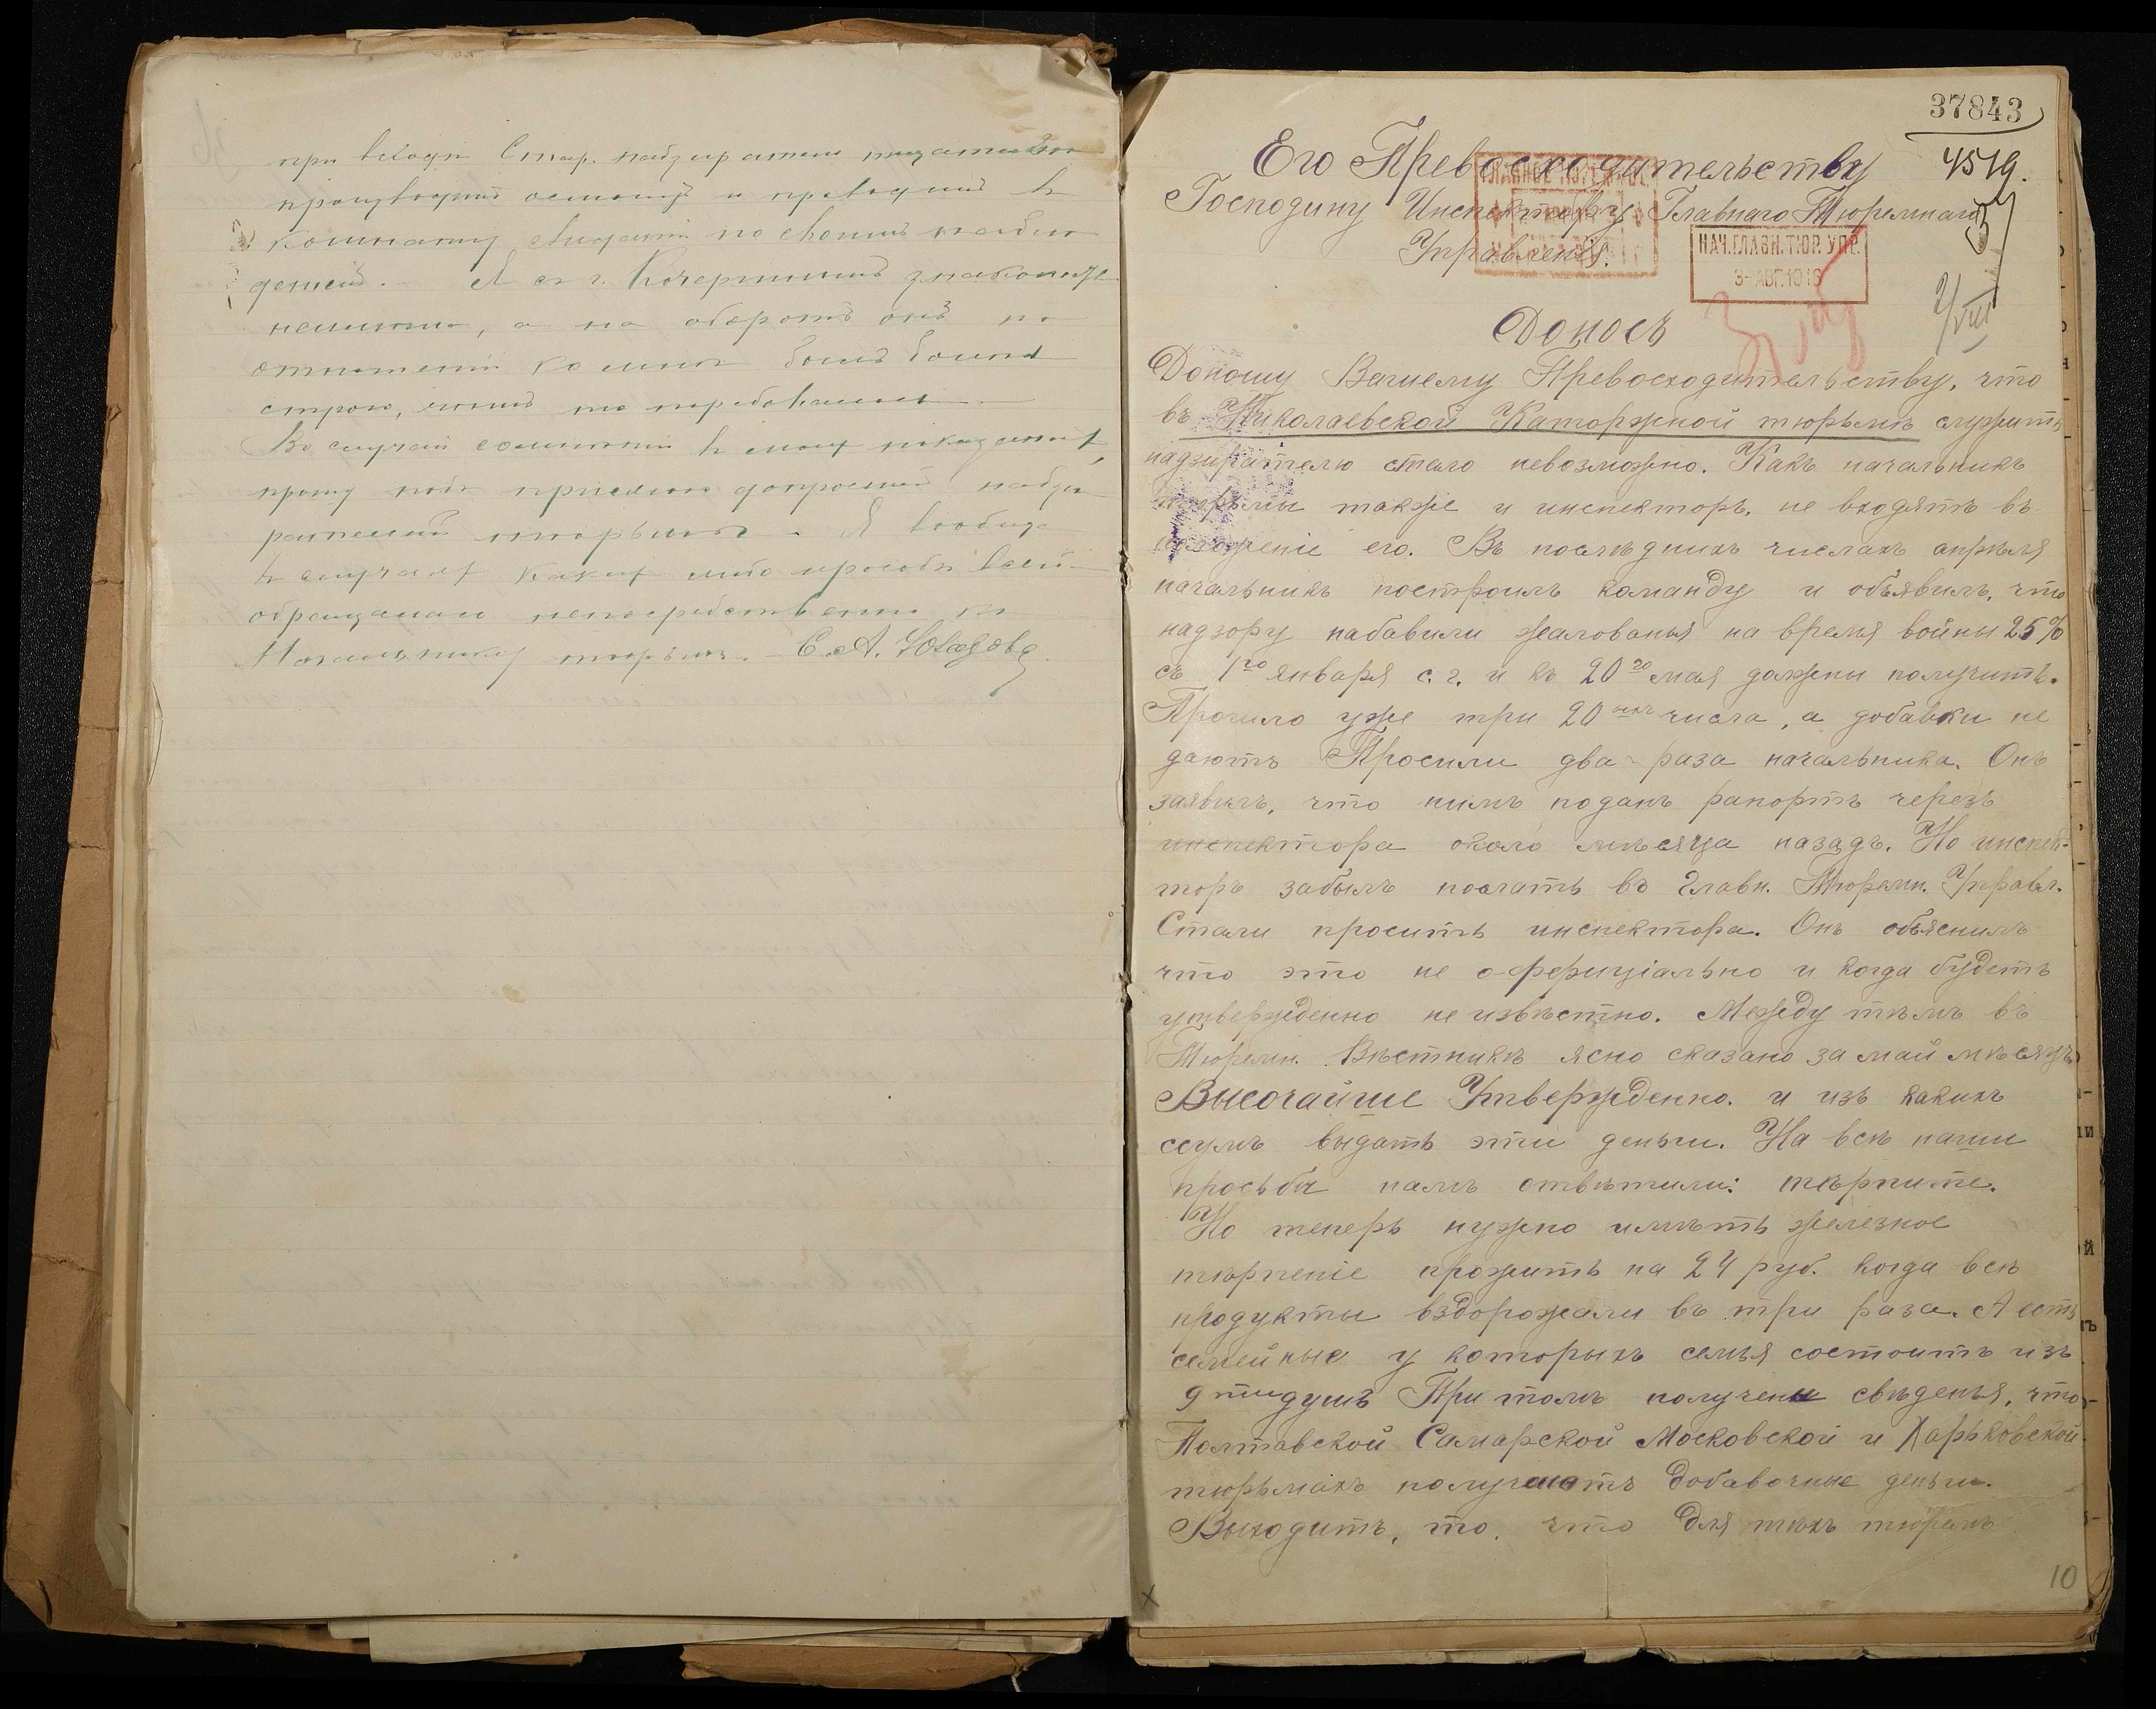 при входѣ Стар. надзиратель тщательно
производитъ осмотръ и проводитъ въ
комнату свиданій по своимъ наблю
деніемъ. Я съ г. Кочергинымъ знакомъ не
а на оборотъ онъ по
отношенію ко мнѣ былъ болѣе
строгъ,
Въ случаѣ сомнѣнія въ моихъ показаніяхъ,
прошу подъ присягою допросить надзи
рателей тюрьмы. Я вообще
въ случаяхъ какихъ либо просьбъ всегда
обращалась непосредственно къ
Начальнику тюрьмы. С. А.
37843
4519.
Его Превосходительству
Господину Инспектору Главнаго Тюремнаго
Управленія.
НАЧ. ГЛАВН. ТЮР. УПР.
3- АВГ. 1916
2/VIII
Доносъ
Доношу Вашему Превосходительству, что
въ Николаевской Каторжной тюрьмѣ служить
надзирателю стало невозможно. Какъ начальникъ
тюрьмы также и инспекторъ, не входятъ въ
положеніе его. Въ послѣднихъ числахъ апрѣля
начальникъ построилъ команду и объявилъ, что
надзору набавили жалованья на время войны 25%
съ 1го января с. г. и къ 20го мая должны получить.
Прошло уже три 20ыхъ числа, а добавки не
даютъ Просили два раза начальника. Онъ
заявилъ, что нимъ поданъ рапортъ черезъ
инспектора около мѣсяца назадъ. Но инспек-
торъ забылъ послать въ Главн. Тюремн. Управл.
Стали просить инспектора. Онъ объяснилъ
что это не оффиціально и когда будетъ
утвержденно не извѣстно. Между тѣмъ въ
Тюремн. Вѣстникѣ ясно сказано за май мѣсяцъ
Высочайше Утвержденно. и изъ какихъ
сумъ выдать эти деньги. На всѣ наши
просьбы намъ отвѣтили: тѣрпите.
Но теперь нужно имѣть железное
тѣрпеніе прожить на 24 руб. когда всѣ
продукты вздорожали въ три раза. А есть
семейные у которыхъ семья состоитъ изъ
9 тидушъ При томъ получены свѣденья, что
Полтавской Самарской Московской и Харьковской
тюрьмахъ получаютъ добавочные деньги.
Выходитъ, то, что для тѣхъ тюремъ
10